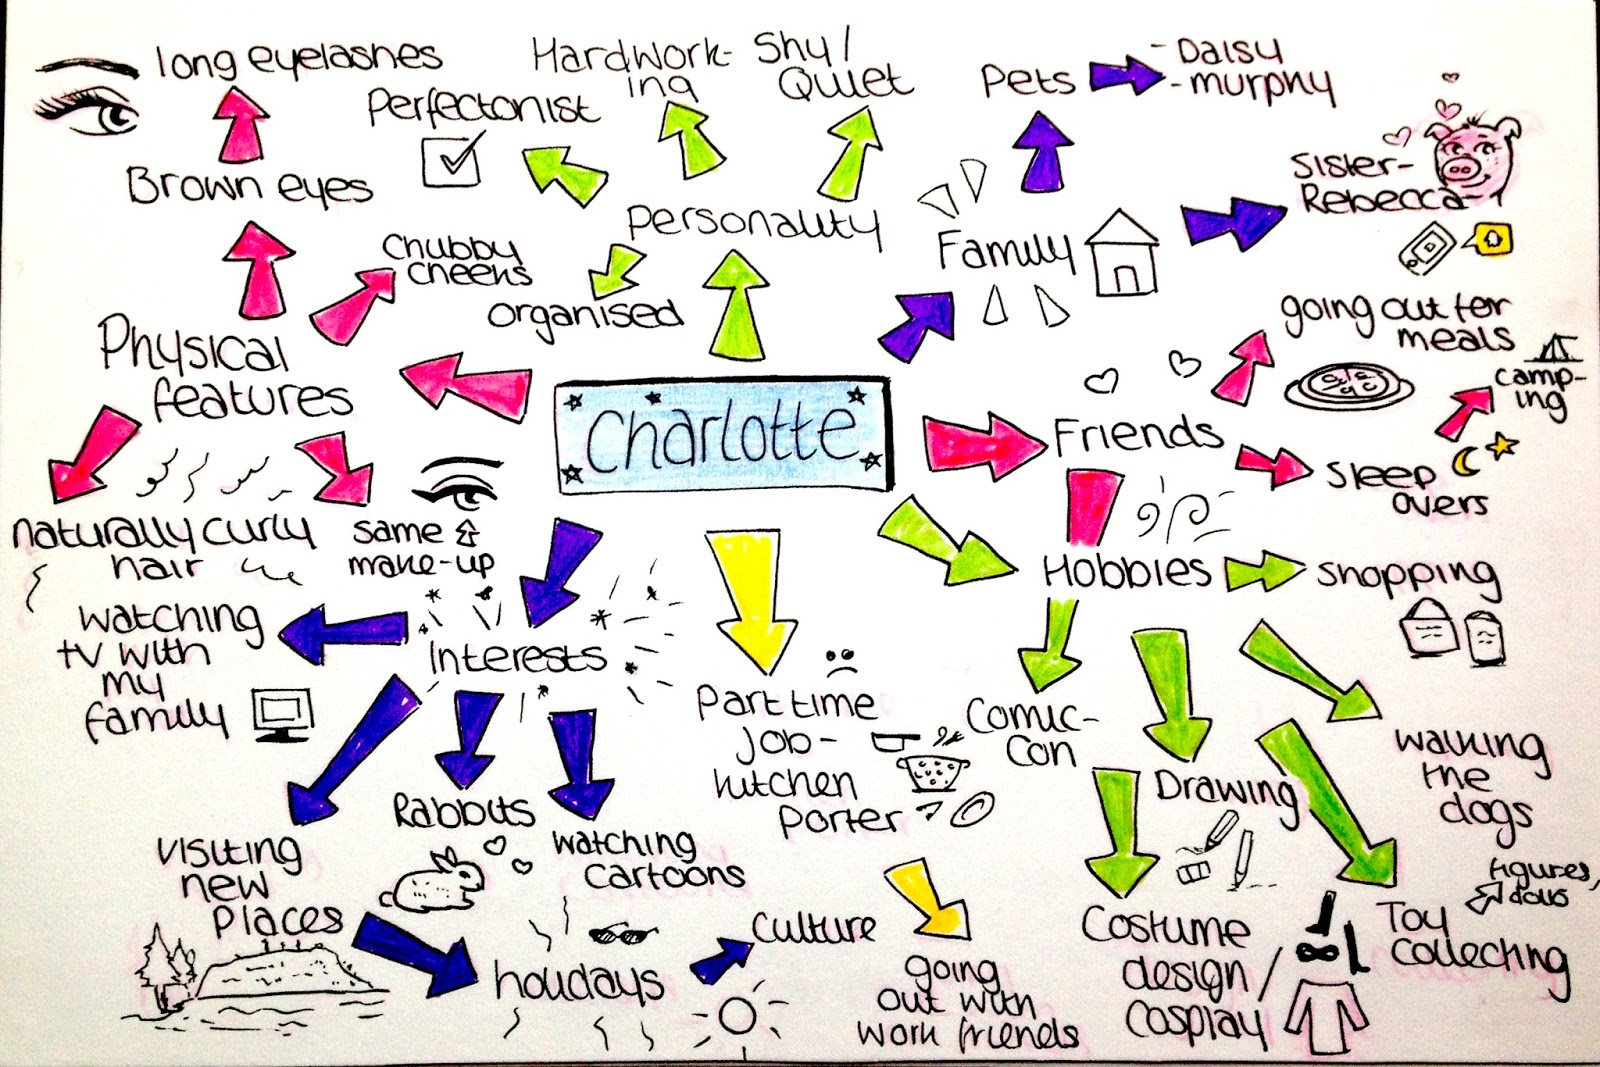 long eyelashes
Hardwork-
ing
Shy/
Quiet
Pets
- Daisy
- murphy
Perfectonist
Brown eyes
Personality
Sister-
Rebecca
Chubby
cheeks
Family
organised
going out for
meals
Physical
features
camp-
ing
Charlotte
Friends
Sleep
overs
naturally curly
hair
same &
make-up
Hobbies
Shopping
watching
tv with
my
family
Interests
Part time
job-
kitchen
porter
Comic-
con
Walking
the
dogs
Drawing
Rabbits
visiting
new
places
watching
cartoons
figures,
dolls
Toy
collecting
Costume
design/
cosplay
culture
holidays
going
out with
work friends